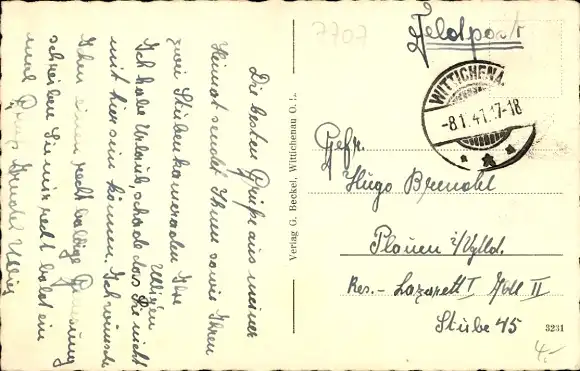 7707
Feldpost
WITTICHENAU
-8.1.41.17-18
Die besten Grüße aus meiner
Heimat sendet Ihnen sowie Ihren
zwei Stubenkameraden Ihr
Ullrich
Ich habe Urlaub, schade das Sie nicht
mit hier sein können. Ich wünsche
Ihnen einen recht baldige Genesung
schreiben Sie mir recht bald ein
mal Gruß
Verlag G. Beckel, Wittichenau O.L.
Gefr.
Hugo Brendel
Plauen i/Vgtld.
Res.- Lazarett I Abt II
Stube 45
3231
4.-